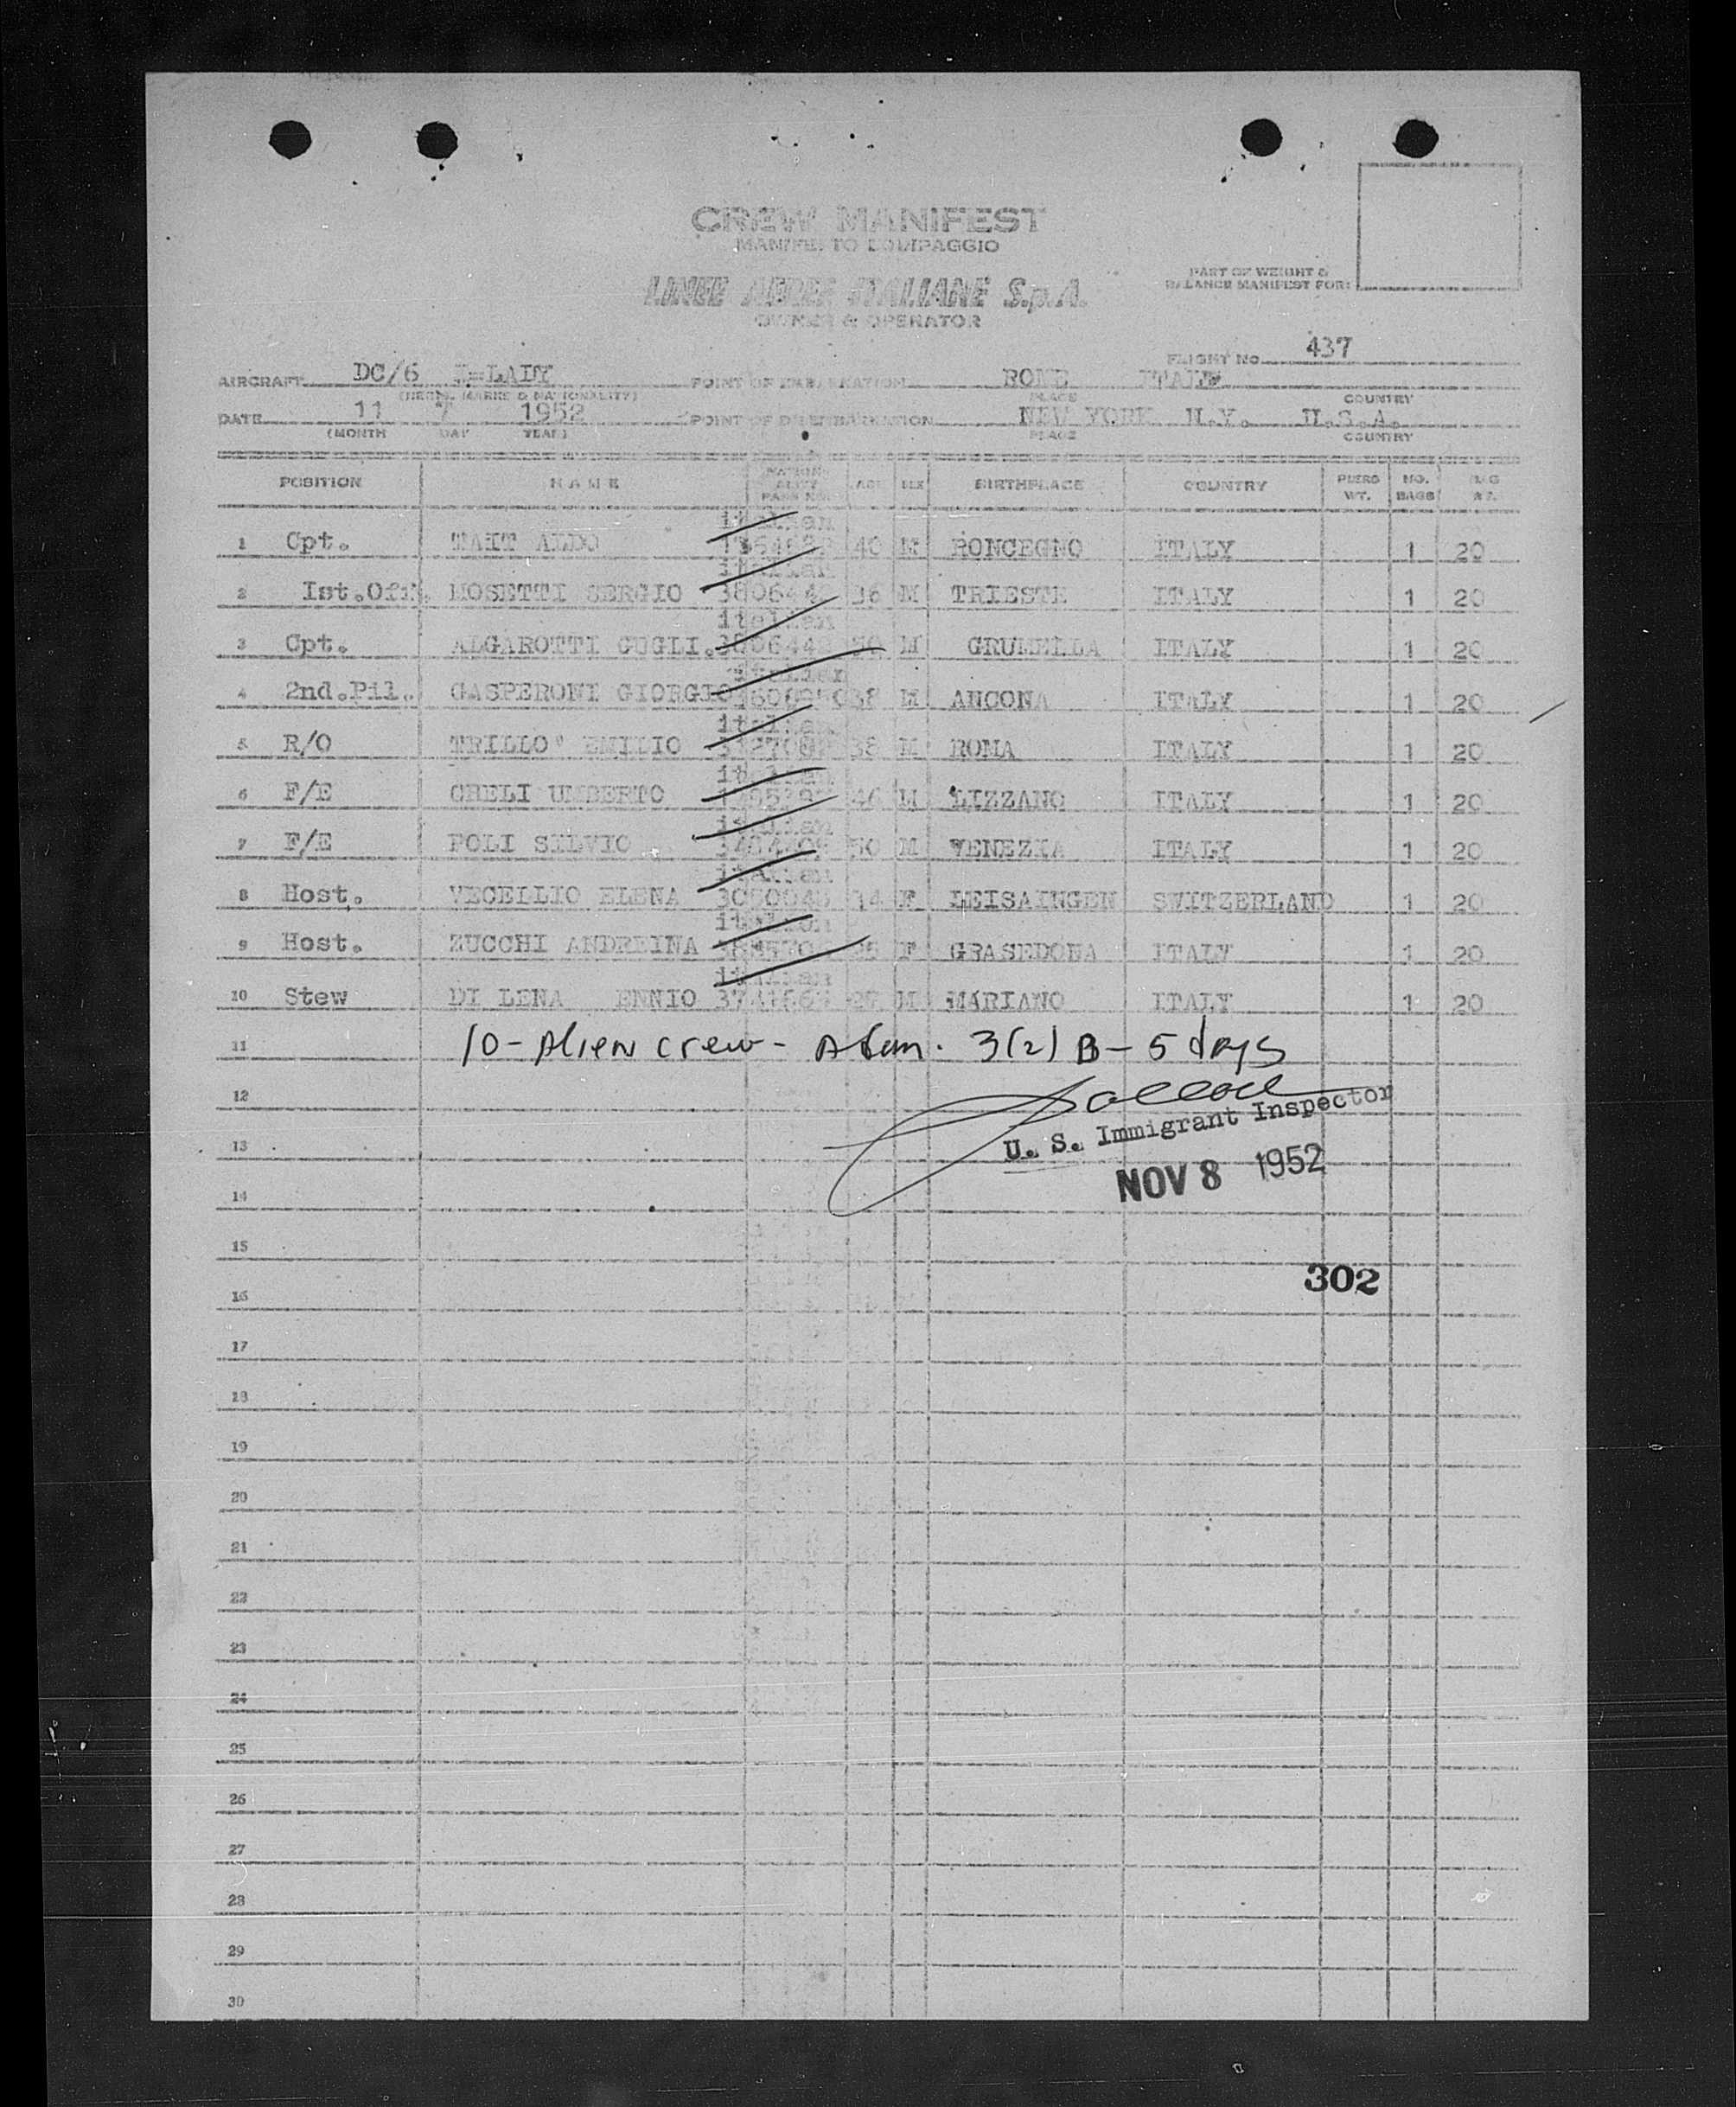 CREW MANIFEST
MANIFESTO EQUIPAGGIO
LINEE AEREE ITALIANE S.p.A.
OWNER & OPERATOR
PART OF WEIGHT &
BALANCE MANIFEST FOR:
FLIGHT No. 437
AIRCRAFT DC/6 I-LADY POINT OF EMBARKATION ROME ITALY
(REGIS. MARKS & NATIONALITY) PLACE COUNTRY
DATE 11 7 1952 POINT OF DISEMBARKATION NEW YORK N.Y. U.S.A.
(MONTH DAY YEAR) PLACE COUNTRY
POSITION NAME NATION- ALITY PASS NO. AGE SEX BIRTHPLACE COUNTRY NO. BAGS BAG WT.
italian
1 Cpt. TAIT ALDO 40 M RONCEGNO ITALY 1 20
italian
2 Ist.Off. MOSETTI SERGIO 36 M TRIESTE ITALY 1 20
italian
3 Cpt. ALGAROTTI GUGLI. M GRUMELLA ITALY 1 20
italian
4 2nd.Pil. GASPERONI GIORGIO 38 M ANCONA ITALY 1 20
italian
5 R/O TRILLO' EMILIO 38 M ROMA ITALY 1 20
italian
6 F/E CHELI UMBERTO 46 M LIZZANO ITALY 1 20
italian
7 F/E POLI SILVIO M VENEZIA ITALY 1 20
italian
8 Host. VECELLIO ELENA F LEISAINGEN SWITZERLAND 1 20
italian
9 Host. ZUCCHI ANDREINA F GRASEDONA ITALY 1 20
italian
10 Stew DI LENA ENNIO M MARIANO ITALY 1 20
11 10 - Alien crew - Adm. 3(2) B - 5 days
12
U. S. Immigrant Inspector
13
NOV 8 1952
14
15
302
16
17
18
19
20
21
22
23
24
25
26
27
28
29
30